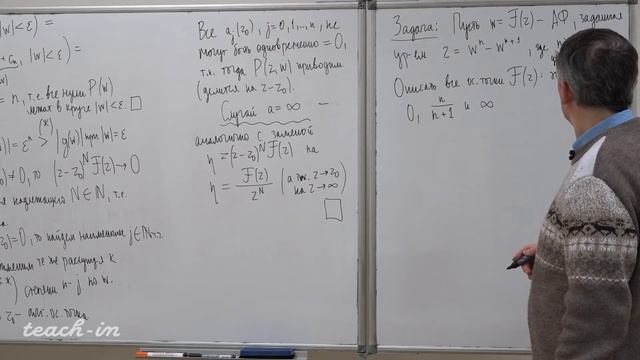 |w|<ε) =
+ cₙ, |w|<ε) =
= n, т.е. все нули P(w)
лежат в круге |w|<ε. □
)| = εⁿ (*) > |g(w)| при |w|=ε
) ≠ 0, то (z-z₀)ᴺ F(z) → 0
надлежащего N∈ℕ, т.е.
)=0, то найдем наименьшее j∈ℕ т.ч.
те же рассужд. к
) степени n-j по w.
z₀ - алг. ос. точка
Все aⱼ(z₀), j=0,1,...,n, не
могут быть одновременно = 0,
т.к. тогда P(z,w) приводим
(делится на z-z₀).
Случай a = ∞ —
аналогично с заменой
η = (z-z₀)ᴺ F(z) на
η = F(z)/zᴺ (а также z→z₀ на z→∞)
□
Задача: Пусть w = F(z) - АФ, заданная
ур-ем z = wⁿ - wⁿ⁺¹, где
Описать все ос. точки F(z):
0, n/(n+1) и ∞
teach-in